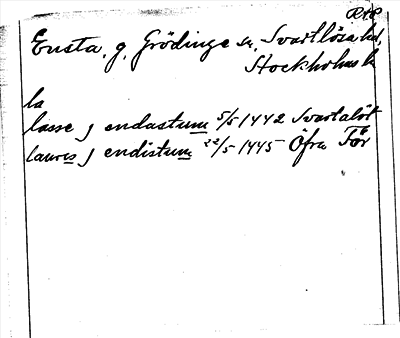 RAP
Ensta, g, Grödinge sn, Svartlösa hd,
Stockholms l
la
lasse j endastum 5/5 1442 Svartalöt
laures j endistum 22/5 1445 Öfra Tör